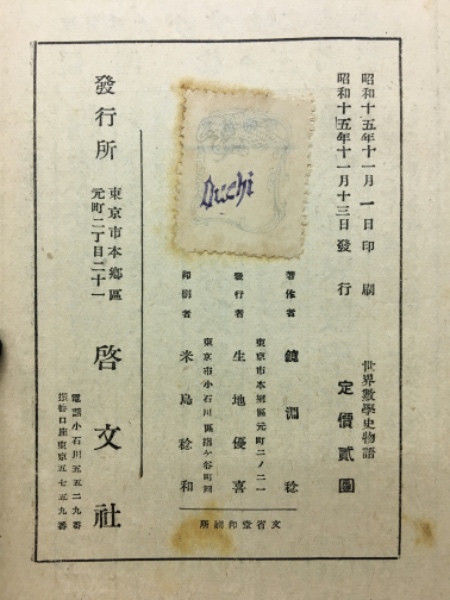 昭和十五年十一月一日印刷
昭和十五年十一月十三日發行
世界數學史物語
定價貳圓
Ouchi
著作者 鏡淵稔
東京市本鄕區元町二ノ二一
發行者 生地優喜
東京市小石川區
印刷者 米島稔和
文省堂印刷所
發行所
東京市本鄕區
元町二丁目二十一
啓文社
電話小石川五五二九番
振替口座東京五七五九番